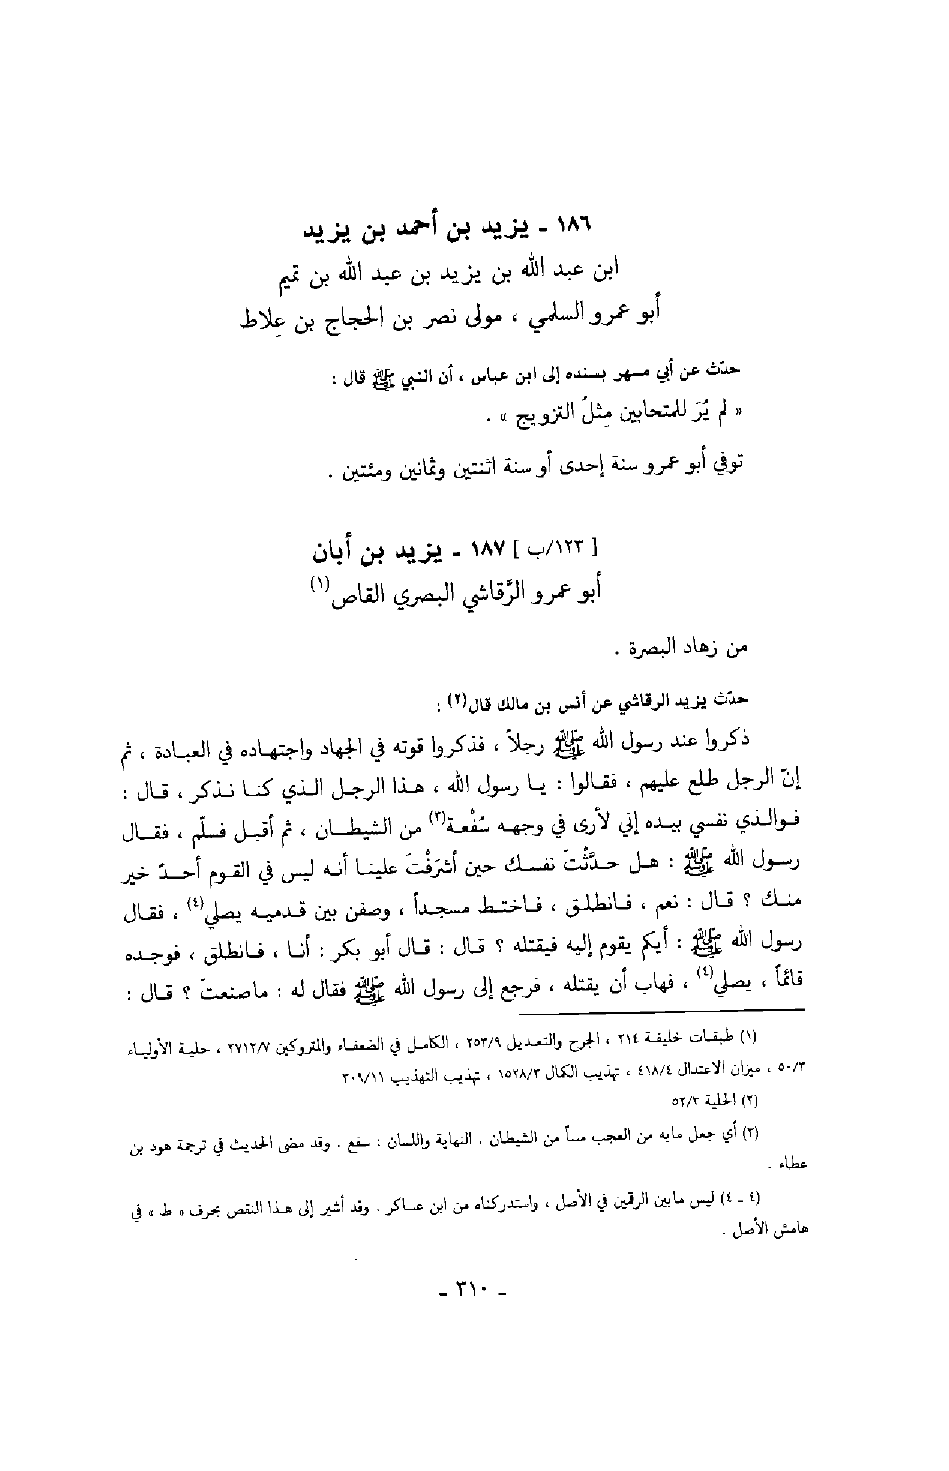 ١٨٦ - يزيد بن أحمد بن يزيد
ابن عبد الله بن يزيد بن عبد الله بن تميم
أبو عمرو السلمي ، مولى نصر بن الحجاج بن عِلاط
حدّث عن أبي مسهر بسنده إلى ابن عباس ، أن النبي ﷺ قال :
« لم يُرَ للمتحابين مِثلُ التزويج » .
توفي أبو عمرو سنة إحدى أو سنة اثنتين وثمانين ومئتين .
[ ١٢٣/ب ] ١٨٧ - يزيد بن أبان
أبو عمرو الرَّقاشي البصري القاص(١)
من زهاد البصرة .
حدّث يزيد الرقاشي عن أنس بن مالك قال(٢) :
ذكروا عند رسول الله ﷺ رجلاً ، فذكروا قوته في الجهاد واجتهاده في العبادة ، ثم
إنّ الرجل طلع عليهم ، فقالوا : يا رسول الله ، هذا الرجل الذي كنا نذكر ، قال :
فوالذي نفسي بيده إني لأرى في وجهه سُفْعة(٣) من الشيطان ، ثم أقبل فسلّم ، فقال
رسول الله ﷺ : هل حدَّثْتَ نفسك حين أشرَفْتَ علينا أنه ليس في القوم أحدٌ خير
منك ؟ قال : نعم ، فانطلق ، فاختط مسجداً ، وصفن بين قدميه يصلي(٤) ، فقال
رسول الله ﷺ : أيكم يقوم إليه فيقتله ؟ قال : قال أبو بكر : أنا ، فانطلق ، فوجده
قائماً ، يصلي(٤) ، فهاب أن يقتله ، فرجع إلى رسول الله ﷺ فقال له : ماصنعتَ ؟ قال :
(١) طبقات خليفة ٢١٤ ، الجرح والتعديل ٢٥٣/٩ ، الكامل في الضعفاء والمتروكين ٢٧١٢/٧ ، حلية الأولياء
٥٠/٣ ، ميزان الاعتدال ٤١٨/٤ ، تهذيب الكمال ١٥٢٨/٣ ، تهذيب التهذيب ٣٠٩/١١
(٢) الحلية ٥٢/٣
(٣) أي جعل مابه من العجب مساً من الشيطان . النهاية واللسان : سفع . وقد مضى الحديث في ترجمة هود بن
عطاء .
(٤ - ٤) ليس مابين الرقمين في الأصل ، واستدركناه من ابن عساكر . وقد أشير إلى هذا النقص بحرف « ط » في
هامش الأصل .
- ٣١٠ -